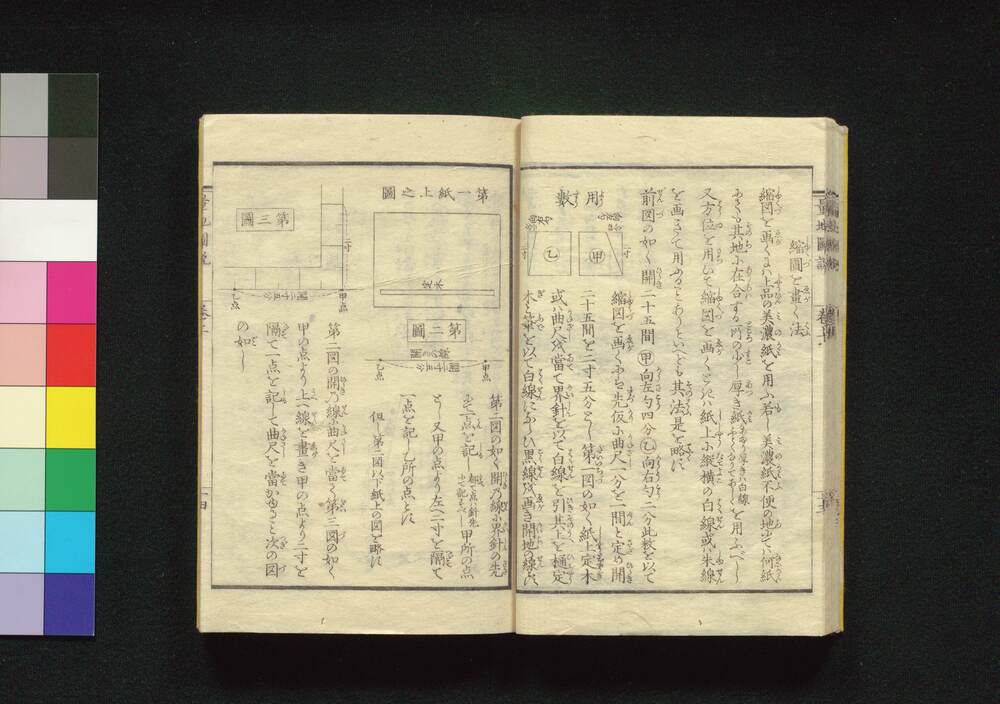 縮圖を畫く法
縮図を画くには上品の美濃紙を用ふ若し美濃紙不便の地にては何紙
にても其地に在合する所の少し厚き紙を用ふべし
又方位を用ひて縮図を画くときは紙上に縦横の白線或は朱線
を画きて用ふることありといへども其法是を略す
用數
甲
乙
前図の如く開二十五間甲向左勾四分乙向右勾二分此数を以て
縮図を画くには先仮に曲尺一分を一間と定め開
二十五間を二寸五分とし第一図の如く紙上定木
或は曲尺を當て界針を以て白線を引其上を樋定
木と筆を以て白線にならひ黒線を画き開地の線とす
第一紙上之圖
定木
第二圖
甲点
乙点
第二図の如く開乃線に界針の先
にて一点を記し甲所の点
とし又甲の点より左へ二寸を隔て
一点を記し乙所の点とす
但し第二図以下紙上の図を略す
第三圖
甲点
乙点
第二図の開乃線に曲尺を當て第三図の如く
甲の点より上へ線を畫き甲の点より二寸を
隔て一点を記して曲尺を當かゆること次の図
の如し